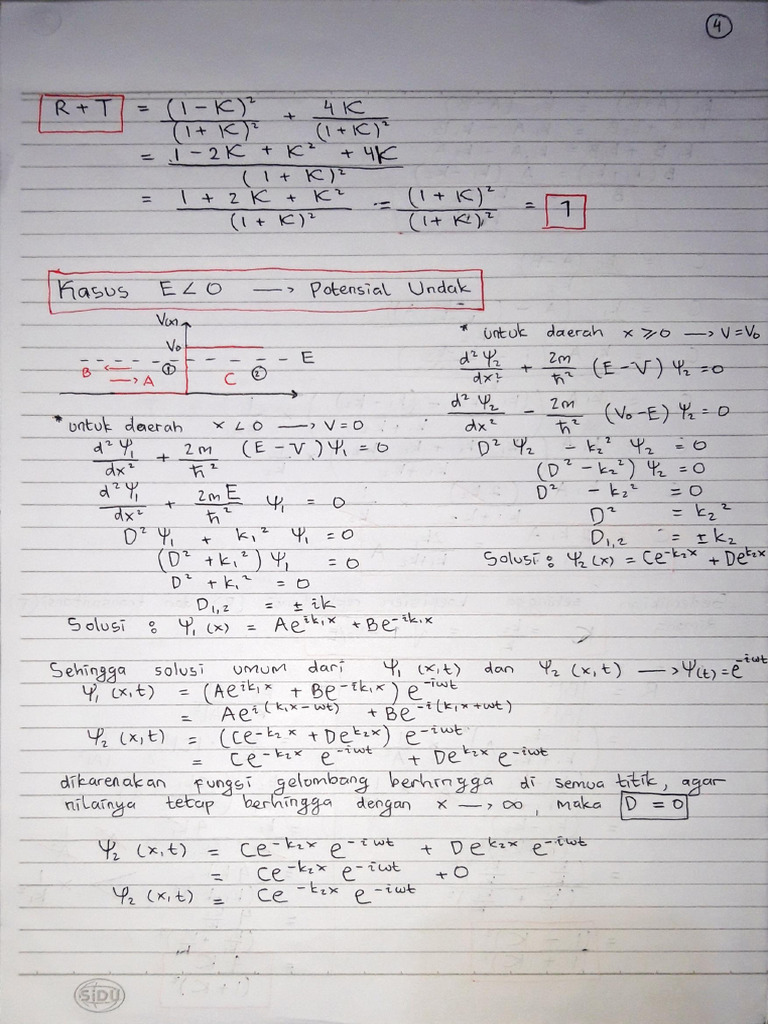 4
R + T = (1 - K)² / (1 + K)² + 4K / (1 + K)²
= 1 - 2K + K² + 4K / (1 + K)²
= 1 + 2K + K² / (1 + K)² = (1 + K)² / (1 + K)² = 1
Kasus E < 0 → Potensial Undak
V(x)
V₀
E
B ← → A ① C ②
* untuk daerah x < 0 → V = 0
d²Ψ₁/dx² + 2m/ħ² (E - V) Ψ₁ = 0
d²Ψ₁/dx² + 2mE/ħ² Ψ₁ = 0
D² Ψ₁ + k₁² Ψ₁ = 0
(D² + k₁²) Ψ₁ = 0
D² + k₁² = 0
D₁,₂ = ± ik
Solusi : Ψ₁ (x) = Ae^ik₁x + Be^-ik₁x
* untuk daerah x ⩾ 0 → V = V₀
d²Ψ₂/dx² + 2m/ħ² (E - V) Ψ₂ = 0
d²Ψ₂/dx² - 2m/ħ² (V₀ - E) Ψ₂ = 0
D² Ψ₂ - k₂² Ψ₂ = 0
(D² - k₂²) Ψ₂ = 0
D² - k₂² = 0
D² = k₂²
D₁,₂ = ± k₂
Solusi : Ψ₂ (x) = Ce^-k₂x + De^k₂x
Sehingga solusi umum dari Ψ₁ (x,t) dan Ψ₂ (x,t) → Ψ(t) = e^-iωt
Ψ₁ (x,t) = (Ae^ik₁x + Be^-ik₁x) e^-iωt
= Ae^i(k₁x - ωt) + Be^-i(k₁x + ωt)
Ψ₂ (x,t) = (Ce^-k₂x + De^k₂x) e^-iωt
= Ce^-k₂x e^-iωt + De^k₂x e^-iωt
dikarenakan fungsi gelombang berhingga di semua titik, agar
nilainya tetap berhingga dengan x → ∞, maka D = 0
Ψ₂ (x,t) = Ce^-k₂x e^-iωt + De^k₂x e^-iωt
= Ce^-k₂x e^-iωt + 0
Ψ₂ (x,t) = Ce^-k₂x e^-iωt
SiDU